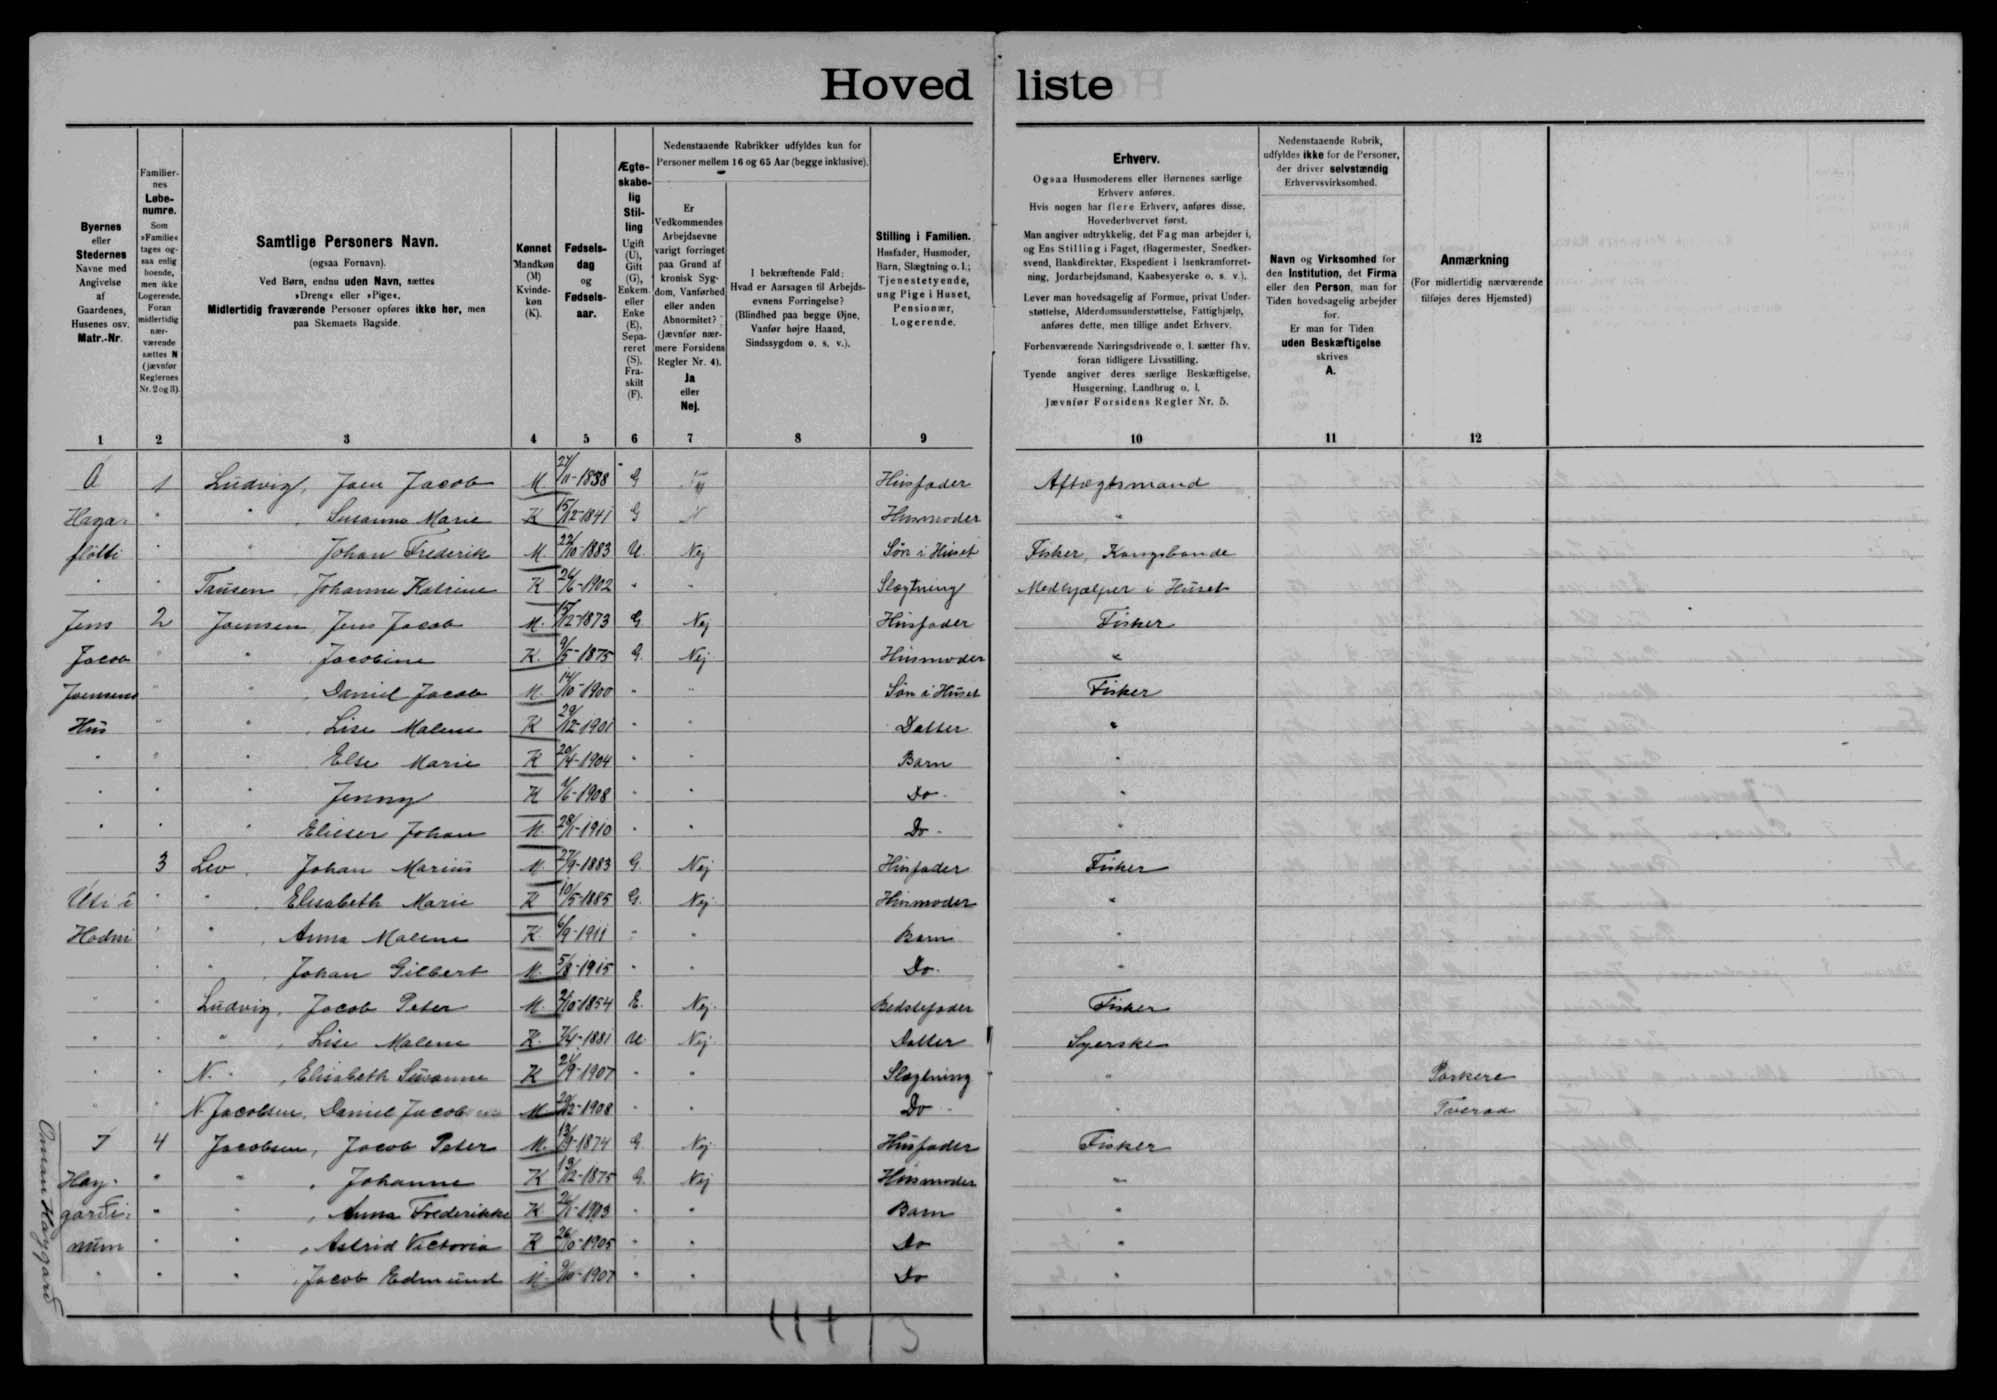 Hovedliste
Byernes eller Stedernes Navne med Angivelse af Gaardenes, Husenes osv. Matr.-Nr.
Familiernes Løbenumre. Som »Familie« tages ogsaa enlig boende, men ikke Logerende. Foran midlertidig nærværende sættes N (jævnfør Reglernes Nr. 2 og 3).
Samtlige Personers Navn. (ogsaa Fornavn). Ved Børn, endnu uden Navn, sættes »Dreng« eller »Pige«. Midlertidig fraværende Personer opføres ikke her, men paa Skemaets Bagside.
Kønnet Mandkøn (M) Kvindekøn (K).
Fødselsdag og Fødselsaar.
Ægteskabelig Stilling Ugift (U), Gift (G), Enkem. eller Enke (E), Separeret (S), Fraskilt (F).
Nedenstaaende Rubrikker udfyldes kun for Personer mellem 16 og 65 Aar (begge inklusive).
Er Vedkommendes Arbejdsevne varigt forringet paa Grund af kronisk Sygdom, Vanførhed eller anden Abnormitet? (Jævnfør nærmere Forsidens Regler Nr. 4). Ja eller Nej.
I bekræftende Fald: Hvad er Aarsagen til Arbejdsevnens Forringelse? (Blindhed paa begge Øjne, Vanfør højre Haand, Sindssygdom o. s. v.).
Stilling i Familien. Husfader, Husmoder, Barn, Slægtning o. l.; Tjenestetyende, ung Pige i Huset, Pensionær, Logerende.
Erhverv. Ogsaa Husmoderens eller Børnenes særlige Erhverv anføres. Hvis nogen har flere Erhverv, anføres disse, Hovederhvervet først. Man angiver udtrykkelig, det Fag man arbejder i, og Ens Stilling i Faget, (Bagermester, Snedkersvend, Bankdirektør, Ekspedient i Isenkramforretning, Jordarbejdsmand, Kaabesyerske o. s. v.). Lever man hovedsagelig af Formue, privat Understøttelse, Alderdomsunderstøttelse, Fattighjælp, anføres dette, men tillige andet Erhverv. Forhenværende Næringsdrivende o. l. sætter fhv. foran tidligere Livsstilling. Tyende angiver deres særlige Beskæftigelse, Husgerning, Landbrug o. l. Jævnfør Forsidens Regler Nr. 5.
Nedenstaaende Rubrik, udfyldes ikke for de Personer, der driver selvstændig Erhvervsvirksomhed.
Navn og Virksomhed for den Institution, det Firma eller den Person, man for Tiden hovedsagelig arbejder for. Er man for Tiden uden Beskæftigelse skrives A.
Anmærkning (For midlertidig nærværende tilføjes deres Hjemsted)
1 2 3 4 5 6 7 8 9 10 11 12
1 Ludvig, Joen Jacob M 1838 G Husfader Aftægtsmand
Haga- " " , Susanna Marie K 15/12-1841 G Husmoder "
" " Johan Frederik M 22/10-1883 U. Nej Søn i Huset Fisker, Kongsbonde
" " Tausen, Johanne Katrine K 1902 " " Slægtning Medhjælper i Huset
Jens 2 Joensen, Jens Jacob M. 15/12-1873 G. Nej Husfader Fisker
Jacob " " Jacobine K. 9/5-1875 G. Nej Husmoder "
Joensens " " , Daniel Jacob M. 14/10-1900 " " Søn i Huset Fisker
Hus " " , Lise Malene K 29/12-1901 " " Datter "
" " Else Marie K 20/4-1904 " " Barn "
" " " Jenny K 1908 " " Do. "
" " " Elieser Johan M. 28/1-1910 " " Do. "
3 Lev, Johan Marius M. 27/9-1883 G. Nej Husfader Fisker
Uti i " " , Elisabeth Marie K 10/5-1885 G. Nej Husmoder "
" " , Anna Malene K 6/9-1911 " " Barn "
" " , Johan Gilbert M. 5/8-1915 " " Do. "
" " Ludvig, Jacob Peter M. 2/10-1854 E. Nej Bedstefader Fisker
" " " , Lise Malene K. 1881 U. Nej Datter Syerske
" " N. " , Elisabeth Susanne K 1907 " " Slægtning " Porkere
" " N. Jacobsen, Daniel Jacob M 1908 " " Do "
I 4 Jacobsen, Jacob Peter M. 1874 G. Nej Husfader Fisker
Hay- " " , Johanne K 1875 G. Nej Husmoder "
" " , Anna Frederikke K 1903 " " Barn "
num " " , Astrid Victoria K 26/10-1905 " " Do "
" " " , Jacob Edmund M. 1907 " " Do "